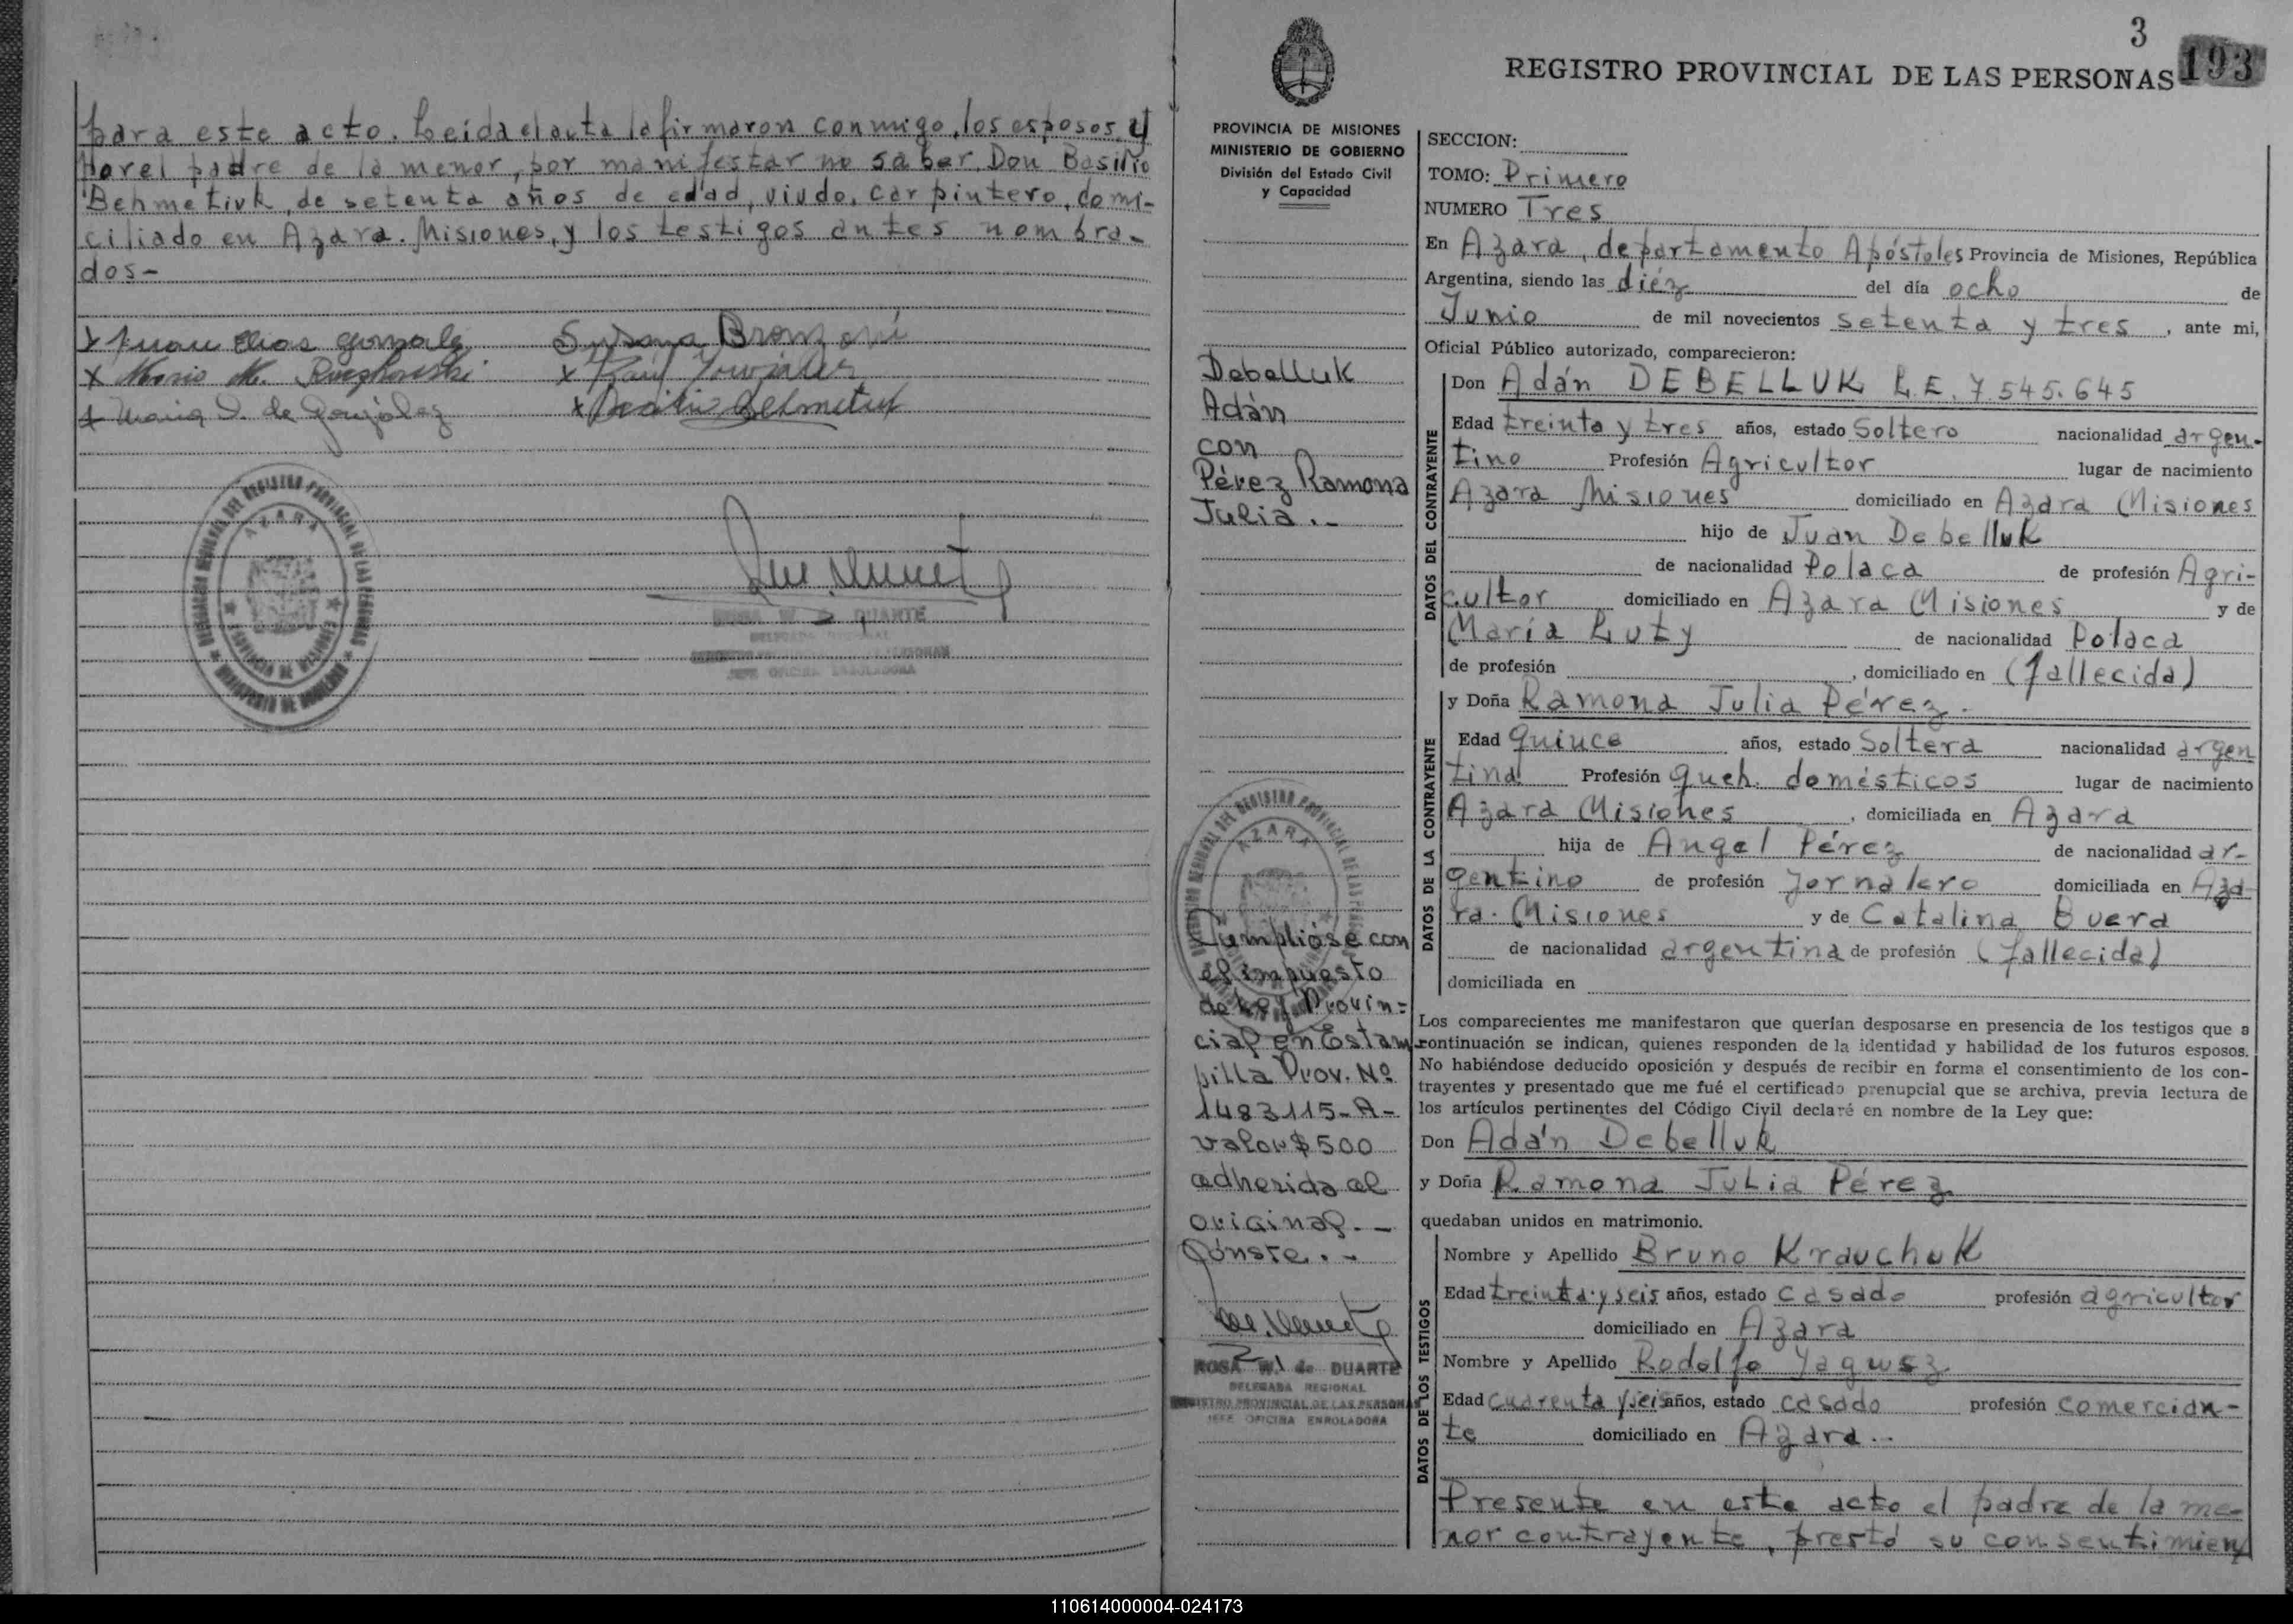 para este acto. Leída el acta la firmaron conmigo, los esposos, y
por el padre de la menor, por manifestar no saber, Don Basilio
Behmetiuk, de setenta años de edad, viudo, carpintero, domi-
ciliado en Azara. Misiones, y los testigos antes nombra-
dos-
x Juan Elias Gonzalez Susana
x Mario M. x Raul
x Maria de González x Basilio Behmetiuk
DELEGACION REGIONAL DEL REGISTRO PROVINCIAL DE LAS PERSONAS
AZARA
PROVINCIA DE MISIONES
MINISTERIO DE GOBIERNO
ROSA W. de DUARTE
DELEGADA REGIONAL
REGISTRO PROVINCIAL DE LAS PERSONAS
JEFE OFICINA ENROLADORA
3
REGISTRO PROVINCIAL DE LAS PERSONAS 193
PROVINCIA DE MISIONES
MINISTERIO DE GOBIERNO
División del Estado Civil
y Capacidad
Debelluk
Adán
con
Pérez Ramona
Julia.-
DELEGACION REGIONAL DEL REGISTRO PROVINCIAL DE LAS PERSONAS
AZARA
Cumplióse con
el impuesto
de Ley Provin=
cial en Estam-
pilla Prov. Nº
1483115-A-
valor $ 500
adherida al
original.-
Cónste.-
ROSA W. de DUARTE
DELEGADA REGIONAL
REGISTRO PROVINCIAL DE LAS PERSONAS
JEFE OFICINA ENROLADORA
SECCION:
TOMO: Primero
NUMERO Tres
En Azara, departamento Apóstoles Provincia de Misiones, República
Argentina, siendo las diéz del día ocho de
Junio de mil novecientos setenta y tres, ante mi,
Oficial Público autorizado, comparecieron:
DATOS DEL CONTRAYENTE
Don Adán DEBELLUK L.E. 7.545.645
Edad treinta y tres años, estado Soltero nacionalidad argen-
tino Profesión Agricultor lugar de nacimiento
Azara Misiones domiciliado en Azara Misiones
hijo de Juan Debelluk
de nacionalidad Polaca de profesión Agri-
cultor domiciliado en Azara Misiones y de
María Luty de nacionalidad Polaca
de profesión , domiciliado en (fallecida)
DATOS DE LA CONTRAYENTE
y Doña Ramona Julia Pérez.
Edad Quince años, estado Soltera nacionalidad argen
tina Profesión Queh. domésticos lugar de nacimiento
Azara Misiones , domiciliada en Azara
hija de Angel Pérez de nacionalidad ar-
gentino de profesión Jornalero domiciliada en Aza-
ra. Misiones y de Catalina Buera
de nacionalidad argentina de profesión (fallecida)
domiciliada en
Los comparecientes me manifestaron que querían desposarse en presencia de los testigos que a
continuación se indican, quienes responden de la identidad y habilidad de los futuros esposos.
No habiéndose deducido oposición y después de recibir en forma el consentimiento de los con-
trayentes y presentado que me fué el certificado prenupcial que se archiva, previa lectura de
los artículos pertinentes del Código Civil declaré en nombre de la Ley que:
Don Adán Debelluk
y Doña Ramona Julia Pérez
quedaban unidos en matrimonio.
DATOS DE LOS TESTIGOS
Nombre y Apellido Bruno Krauchuk
Edad treinta y seis años, estado casado profesión agricultor
domiciliado en Azara
Nombre y Apellido Rodolfo Yagusz
Edad cuarenta y seis años, estado casado profesión comercian-
te domiciliado en Azara..
Presente en este acto el padre de la me-
nor contrayente, prestó su consentimien
110614000004-024173